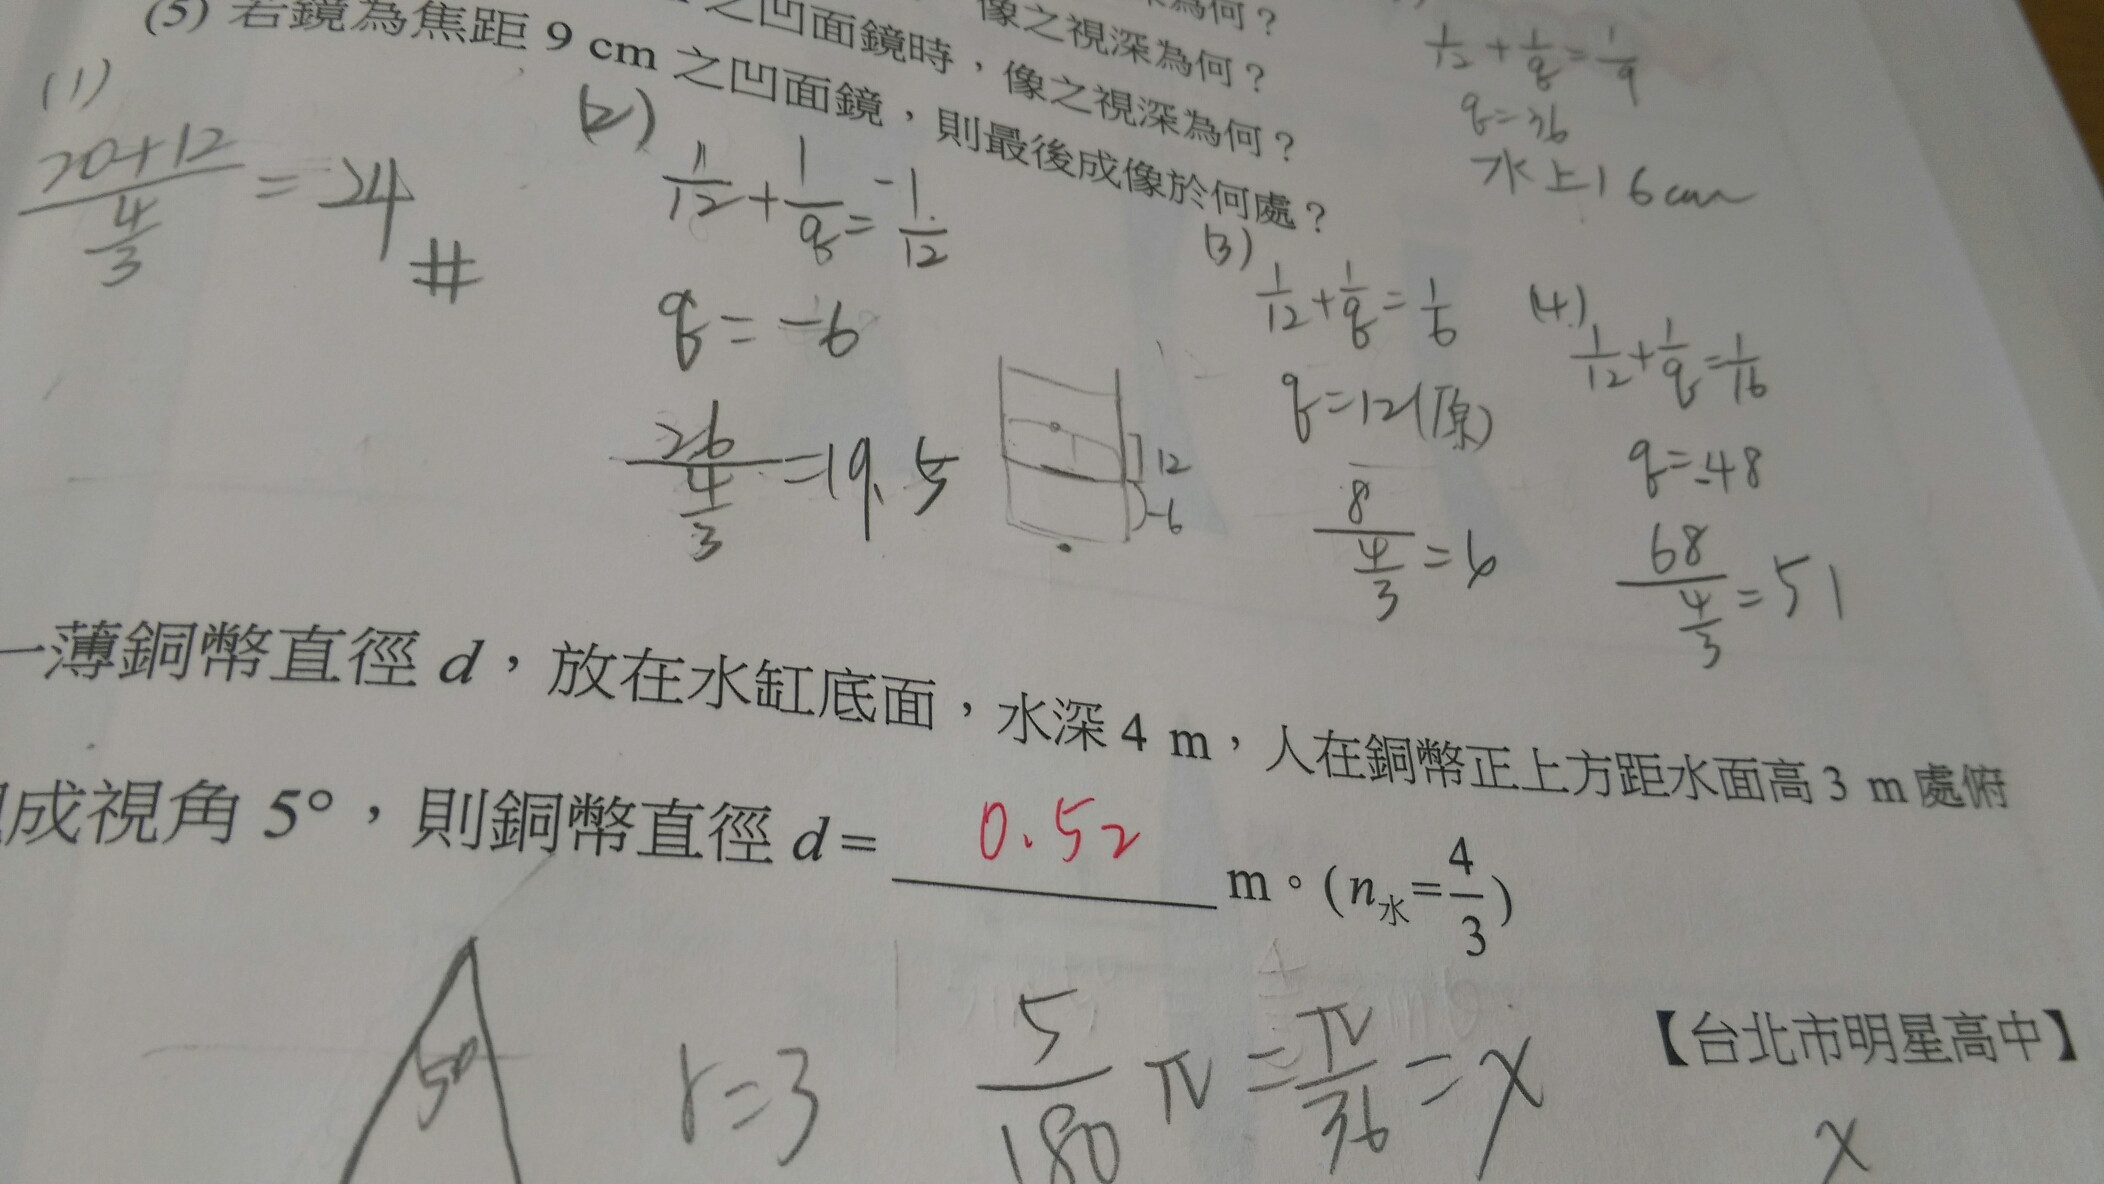 為何？
像之視深為何？
之凹面鏡時，像之視深為何？
(5) 若鏡為焦距 9 cm 之凹面鏡，則最後成像於何處？
1/12 + 1/q = 1/9
q=36
水上16cm
(1)
20+12 / 4/3 = 24 #
(2)
1/12 + 1/q = -1/12
q = -6
26 / 4/3 = 19.5
12
-6
(3)
1/12 + 1/q = 1/6
q=12(原)
8 / 4/3 = 6
(4)
1/12 + 1/q = 1/16
q=-48
68 / 4/3 = 51
一薄銅幣直徑 d，放在水缸底面，水深 4 m，人在銅幣正上方距水面高 3 m 處俯
成視角 5°，則銅幣直徑 d = 0.52 m。(n水=4/3)
【台北市明星高中】
5°
r=3
5/180 π = π/36 = x
x